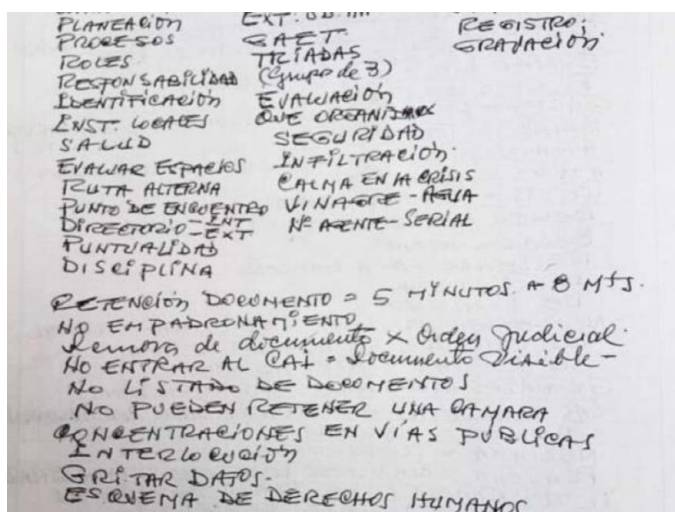 PLANEACIÓN
PROCESOS
ROLES
RESPONSABILIDAD
IDENTIFICACIÓN
INST. LOCALES
SALUD
EVALUAR ESPACIOS
RUTA ALTERNA
PUNTO DE ENCUENTRO
DIRECTORIO - INT
- EXT
PUNTUALIDAD
DISCIPLINA
GAET.
TRÍADAS
(Grupo de 3)
EVALUACIÓN
QUE ORGANISMOS
SEGURIDAD
INFILTRACIÓN
CALMA EN LA CRISIS
VINAGRE - AGUA
Nº AGENTE - SERIAL
REGISTRO;
GRABACIÓN
RETENCIÓN DOCUMENTO = 5 MINUTOS. A 8 MtS.
NO EMPADRONAMIENTO
Demora de documento X Orden Judicial.
NO ENTRAR AL CAI = Documento Visible -
NO LISTADO DE DOCUMENTOS
NO PUEDEN RETENER UNA CAMARA
CONCENTRACIONES EN VÍAS PUBLICAS
INTERLOCUCIÓN
GRITAR DATOS.
ESQUEMA DE DERECHOS HUMANOS